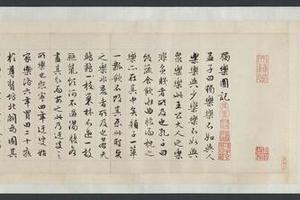 獨樂園記
孟子曰獨樂樂不如與人
樂樂與少樂樂不如與
眾樂樂此王公大人之樂
非貧賤者所及也孔子曰
飯蔬食飲水曲肱而枕之
樂在其中矣顏子一簞食
一瓢飲不改其樂此聖賢
之樂非愚者所及也若夫
鷦鷯巢林不過一枝
鼴鼠飲河不過滿腹各
盡其分而安之此乃迂叟之
所樂也熙寧四年迂叟始
家洛六年買田二十畝
於尊賢坊北闢為園其